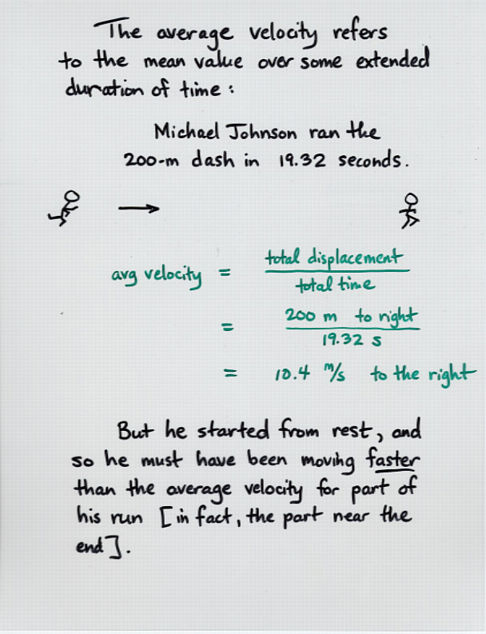 The average velocity refers
to the mean value over some extended
duration of time :
Michael Johnson ran the
200-m dash in 19.32 seconds.
avg velocity = total displacement
total time
= 200 m to right
19.32 s
= 10.4 m/s to the right
But he started from rest, and
so he must have been moving faster
than the average velocity for part of
his run [in fact, the part near the
end].